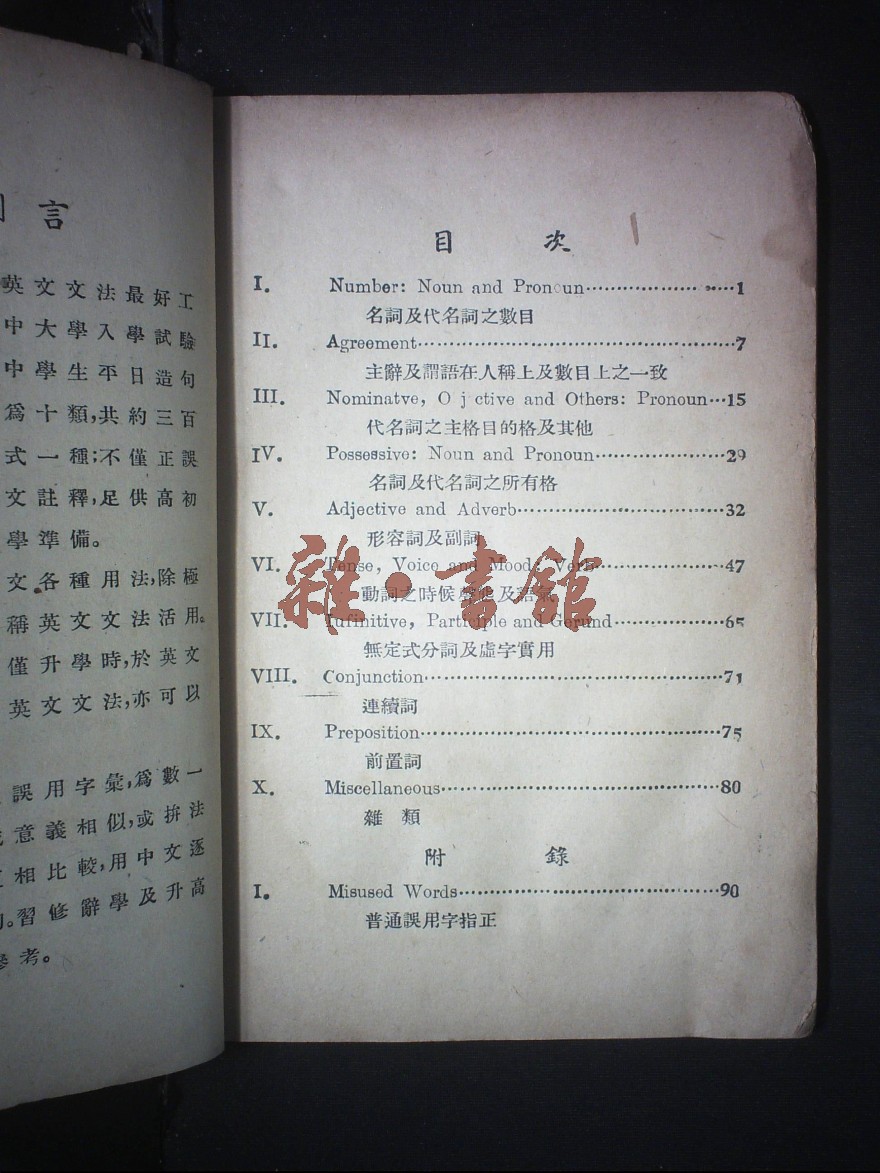 言
英文文法最好工
中大學入學試驗
中學生平日造句
爲十類,共約三百
式一種;不僅正誤
文註釋,足供高初
學準備。
文各種用法,除極
稱英文文法活用。
僅升學時,於英文
英文文法,亦可以
誤用字彙,爲數一
意義相似,或拚法
相比較,用中文逐
。習修辭學及升高
參考。
目 次
I. Number: Noun and Pronoun 1
名詞及代名詞之數目
II. Agreement 7
主辭及謂語在人稱上及數目上之一致
III. Nominatve, O j ctive and Others: Pronoun 15
代名詞之主格目的格及其他
IV. Possessive: Noun and Pronoun 29
名詞及代名詞之所有格
V. Adjective and Adverb 32
形容詞及副詞
VI. Tense, Voice and Mood: Verb 47
動詞之時候聲態及語氣
VII. Infinitive, Participle and Gerund 65
無定式分詞及虛字實用
VIII. Conjunction 71
連續詞
IX. Preposition 75
前置詞
X. Miscellaneous 80
雜 類
附 錄
I. Misused Words 90
普通誤用字指正
雜·書館